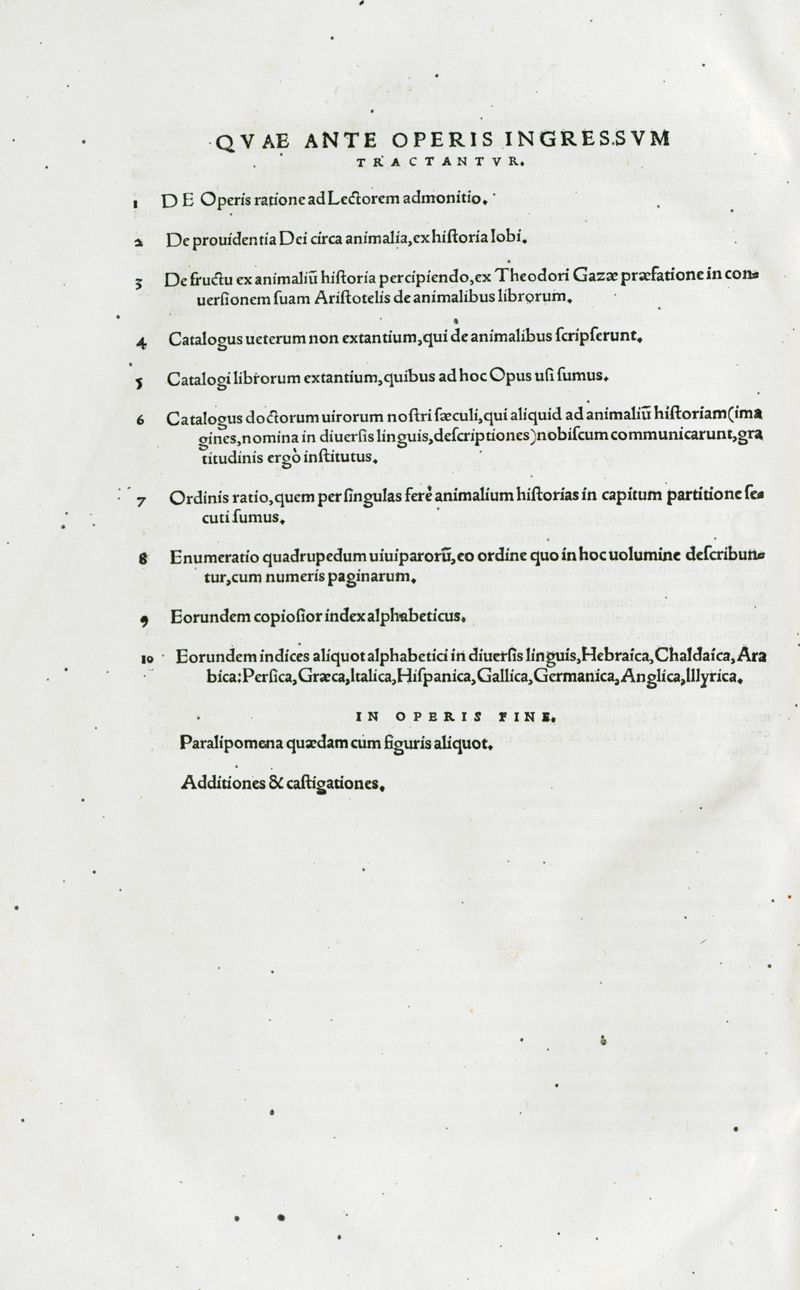 QVAE ANTE OPERIS INGRESSVM
TRACTANTVR.
1 DE Operis ratione ad Lectorem admonitio.
2 De prouidentia Dei circa animalia, ex historia Iobi.
3 De fructu ex animaliū historia percipiendo, ex Theodori Gazæ præfatione in con-
uersionem suam Aristotelis de animalibus librorum.
4 Catalogus ueterum non extantium, qui de animalibus scripserunt.
5 Catalogi librorum extantium, quibus ad hoc Opus usi sumus.
6 Catalogus doctorum uirorum nostri sæculi, qui aliquid ad animaliū historiam (ima
gines, nomina in diuersis linguis, descriptiones) nobiscum communicarunt, gra
titudinis ergò institutus.
7 Ordinis ratio, quem per singulas ferè animalium historias in capitum partitione se-
cuti sumus.
8 Enumeratio quadrupedum uiuiparorū, eo ordine quo in hoc uolumine describun-
tur, cum numeris paginarum.
9 Eorundem copiosior index alphabeticus.
10 Eorundem indices aliquot alphabetici in diuersis linguis, Hebraica, Chaldaica, Ara
bica: Persica, Græca, Italica, Hispanica, Gallica, Germanica, Anglica, Illyrica.
IN OPERIS FINE.
Paralipomena quædam cum figuris aliquot.
Additiones & castigationes.